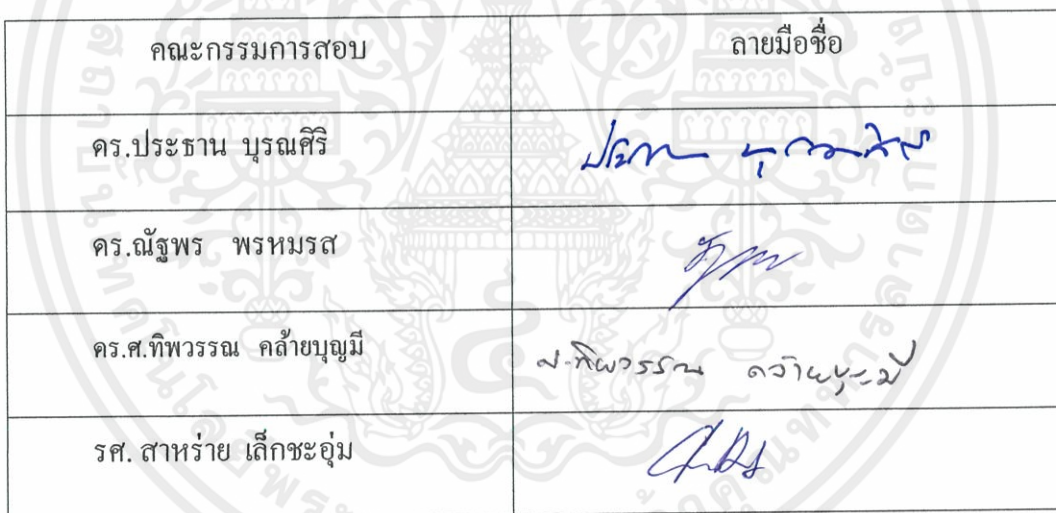 คณะกรรมการสอบ ลายมือชื่อ
ดร.ประธาน บุรณศิริ ประธาน บุรณศิริ
ดร.ณัฐพร พรหมรส
ดร.ศ.ทิพวรรณ คล้ายบุญมี ศ.ทิพวรรณ คล้ายบุญมี
รศ. สาหร่าย เล็กชะอุ่ม